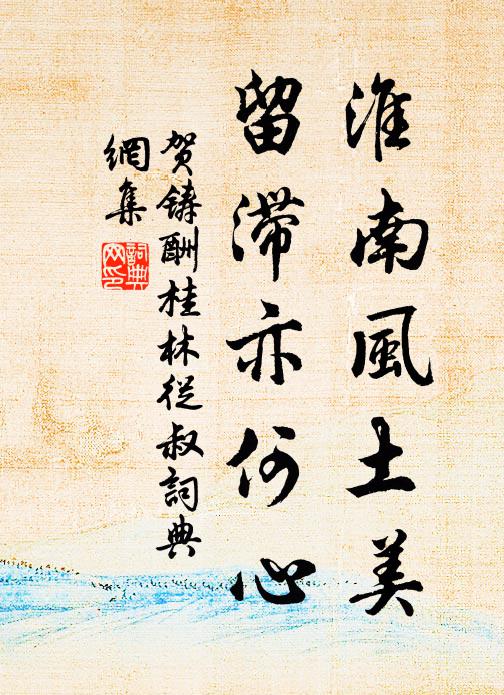 淮南風土美
留滯亦何心
贺铸酬桂林從叔詞典
網集
詞典
网印